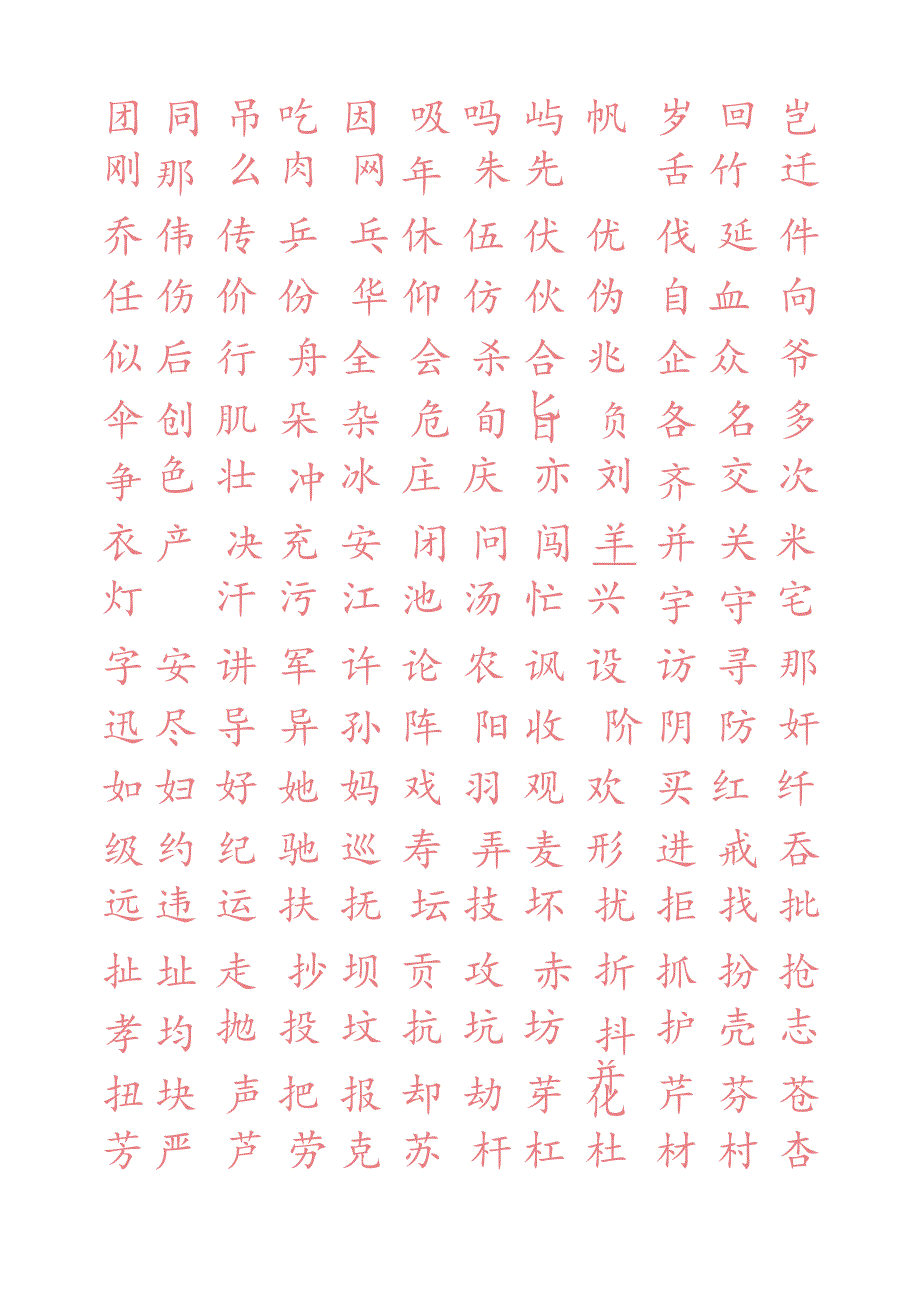 团同吊吃因吸吗屿帆岁回岂
刚那么肉网年朱先舌竹迁
乔伟传乒乓休伍伏优伐延件
任伤价份华仰仿伙伪自血向
似后行舟全会杀合兆企众爷
伞创肌朵杂危旬旨负各名多
争色壮冲冰庄庆亦刘齐交次
衣产决充安闭问闯羊并关米
灯汗污江池汤忙兴宇守宅
字安讲军许论农讽设访寻那
迅尽导异孙阵阳收阶阴防奸
如妇好她妈戏羽观欢买红纤
级约纪驰巡寿弄麦形进戒吞
远违运扶抚坛技坏扰拒找批
扯址走抄坝贡攻赤折抓扮抢
孝均抛投坟抗坑坊抖护壳志
扭块声把报却劫芽并化芹芬苍
芳严芦劳克苏杆杠杜材村杏